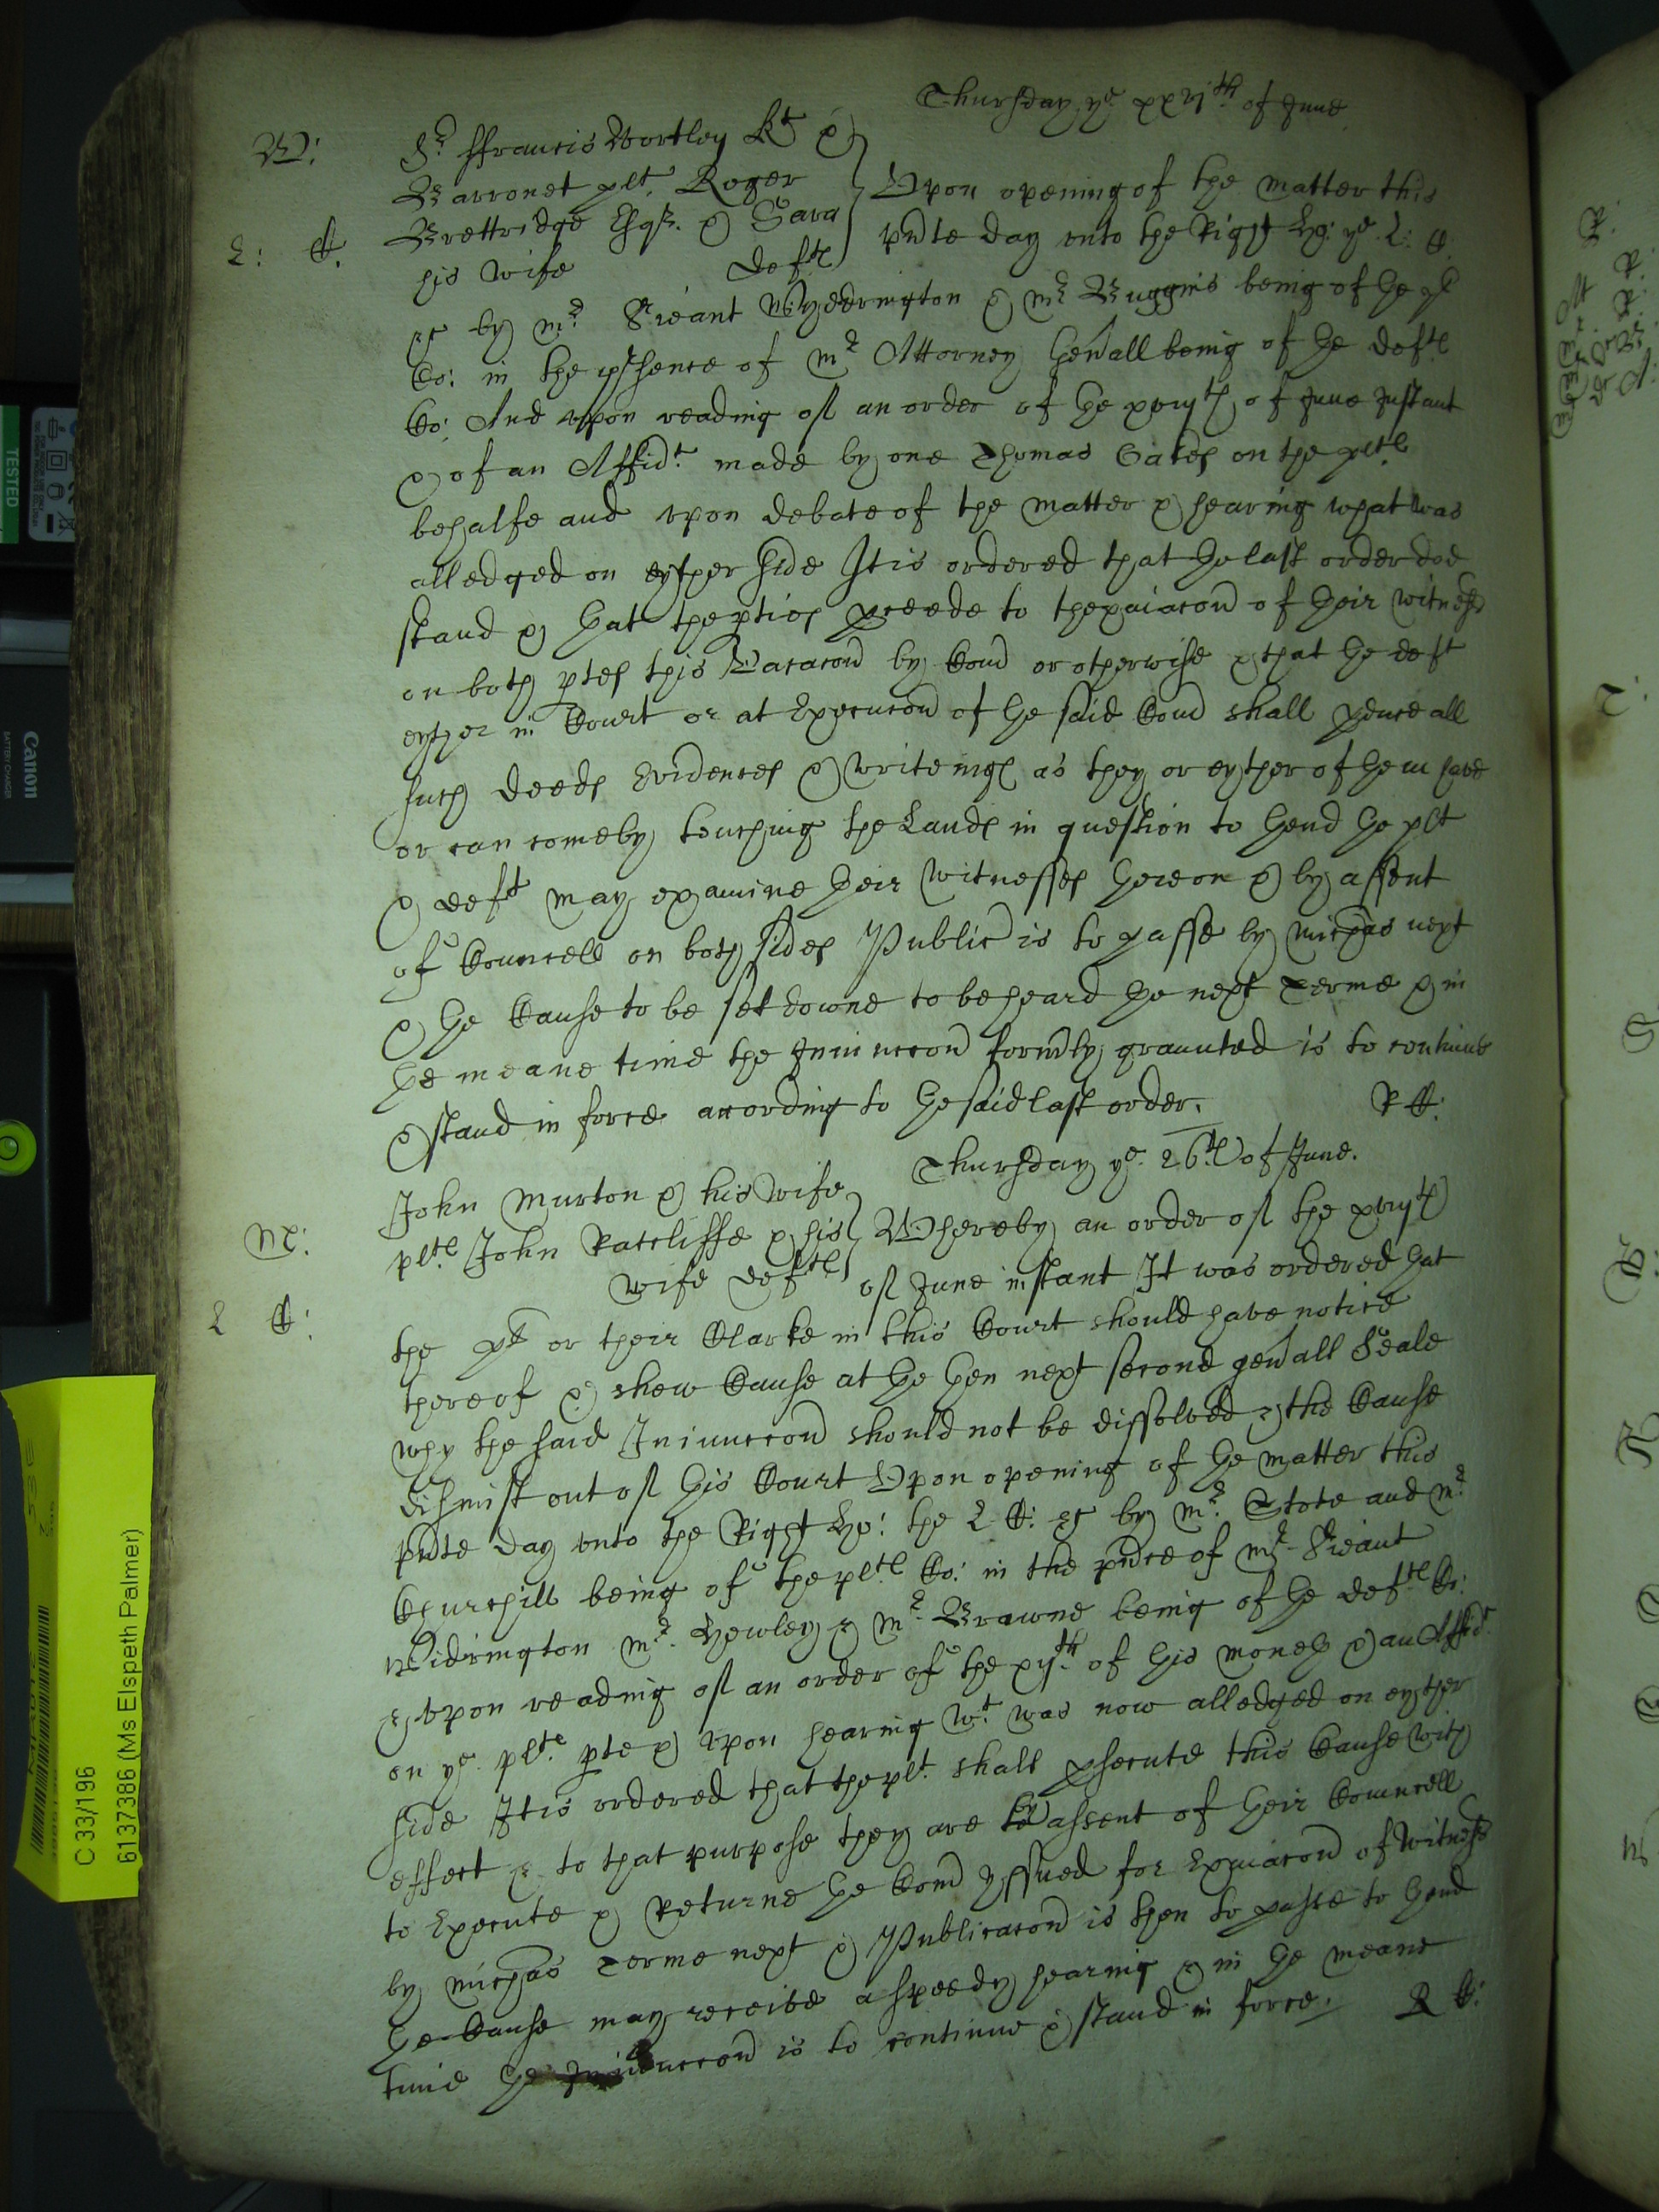 Thursday ye xxvjth of June
W: Sr ffrancis Wortley Kt &
Barronet plt. Roger
Brettridge Esqr. & Sara
his wife Deftes
Upon opening of the matter this
L: C. pnte day unto the Right Ho: ye L: C.
&c by mr. Srieant Wyddrington & mr Buggins being of the pl
Co: in the pshence of mr Attorney Genall being of the deftes
Co: And upon reading of an order of the xviijth of June Instant
& of an Affidt. made by one Thomas Gates on the pltes
behalfe and upon debate of the matter & hearing what was
alledged on eyther side It is ordered that the last order doe
stand & that the pties pceede to the exaiacon of their witnesses
on both ptes this Vacacon by Com or otherwise & that the deft
eyther in Court or at Execucon of the said Com shall pduce all
such deeds Evidences & writeings as they or eyther of them have
or can come by touching the Lands in question to thend the plt
& deft may examine their witnesses thereon & by assent
of Councell on both sides Public is to passe by Michas next
& the Cause to be set downe to be heard the next Terme & in
the meane time the Iniunccon formerly graunted is to continue
& stand in force according to the said last order. R C:
Thursday ye. 26th of June.
John Murton & his Wife
M: pltes John Ratcliffe & his
wife deftes
Whereby an order of the xviijth
of June instant It was ordered that
L C: the plt or their Clarke in this Court should have notice
thereof & shew Cause at the then next second genall Seale
why the said Iniunccon should not be dissolved & the Cause
dismist out of this Court Upon opening of the matter this
pnte day unto the Right Ho: the L C: &c by mr. Stote and mr.
Churchill being of the pltes Co: in the pnce of mr. Srieant
Widrington mr. Howley & mr. Browne being of the deftes Co:
& upon reading of an order of the xijth of this moneth & an Affidt
on ye. plte. pte & upon hearing wt. was now alledged on eyther
side It is ordered that the plt. shall psecute this Cause with
effect & to that purpose they are by assent of their Councell
to Execute & Returne the Com yssued for Exaiacon of Witnesses
by Michas Terme next & Publicacon is then to passe to thend
the Cause may receive a speedy hearing & in the meane
time the Iniunccon is to continue & stand in force. R C:
C 33/196
61377386 (Ms Elspeth Palmer)
TESTED
Canon
BATTERY CHARGER